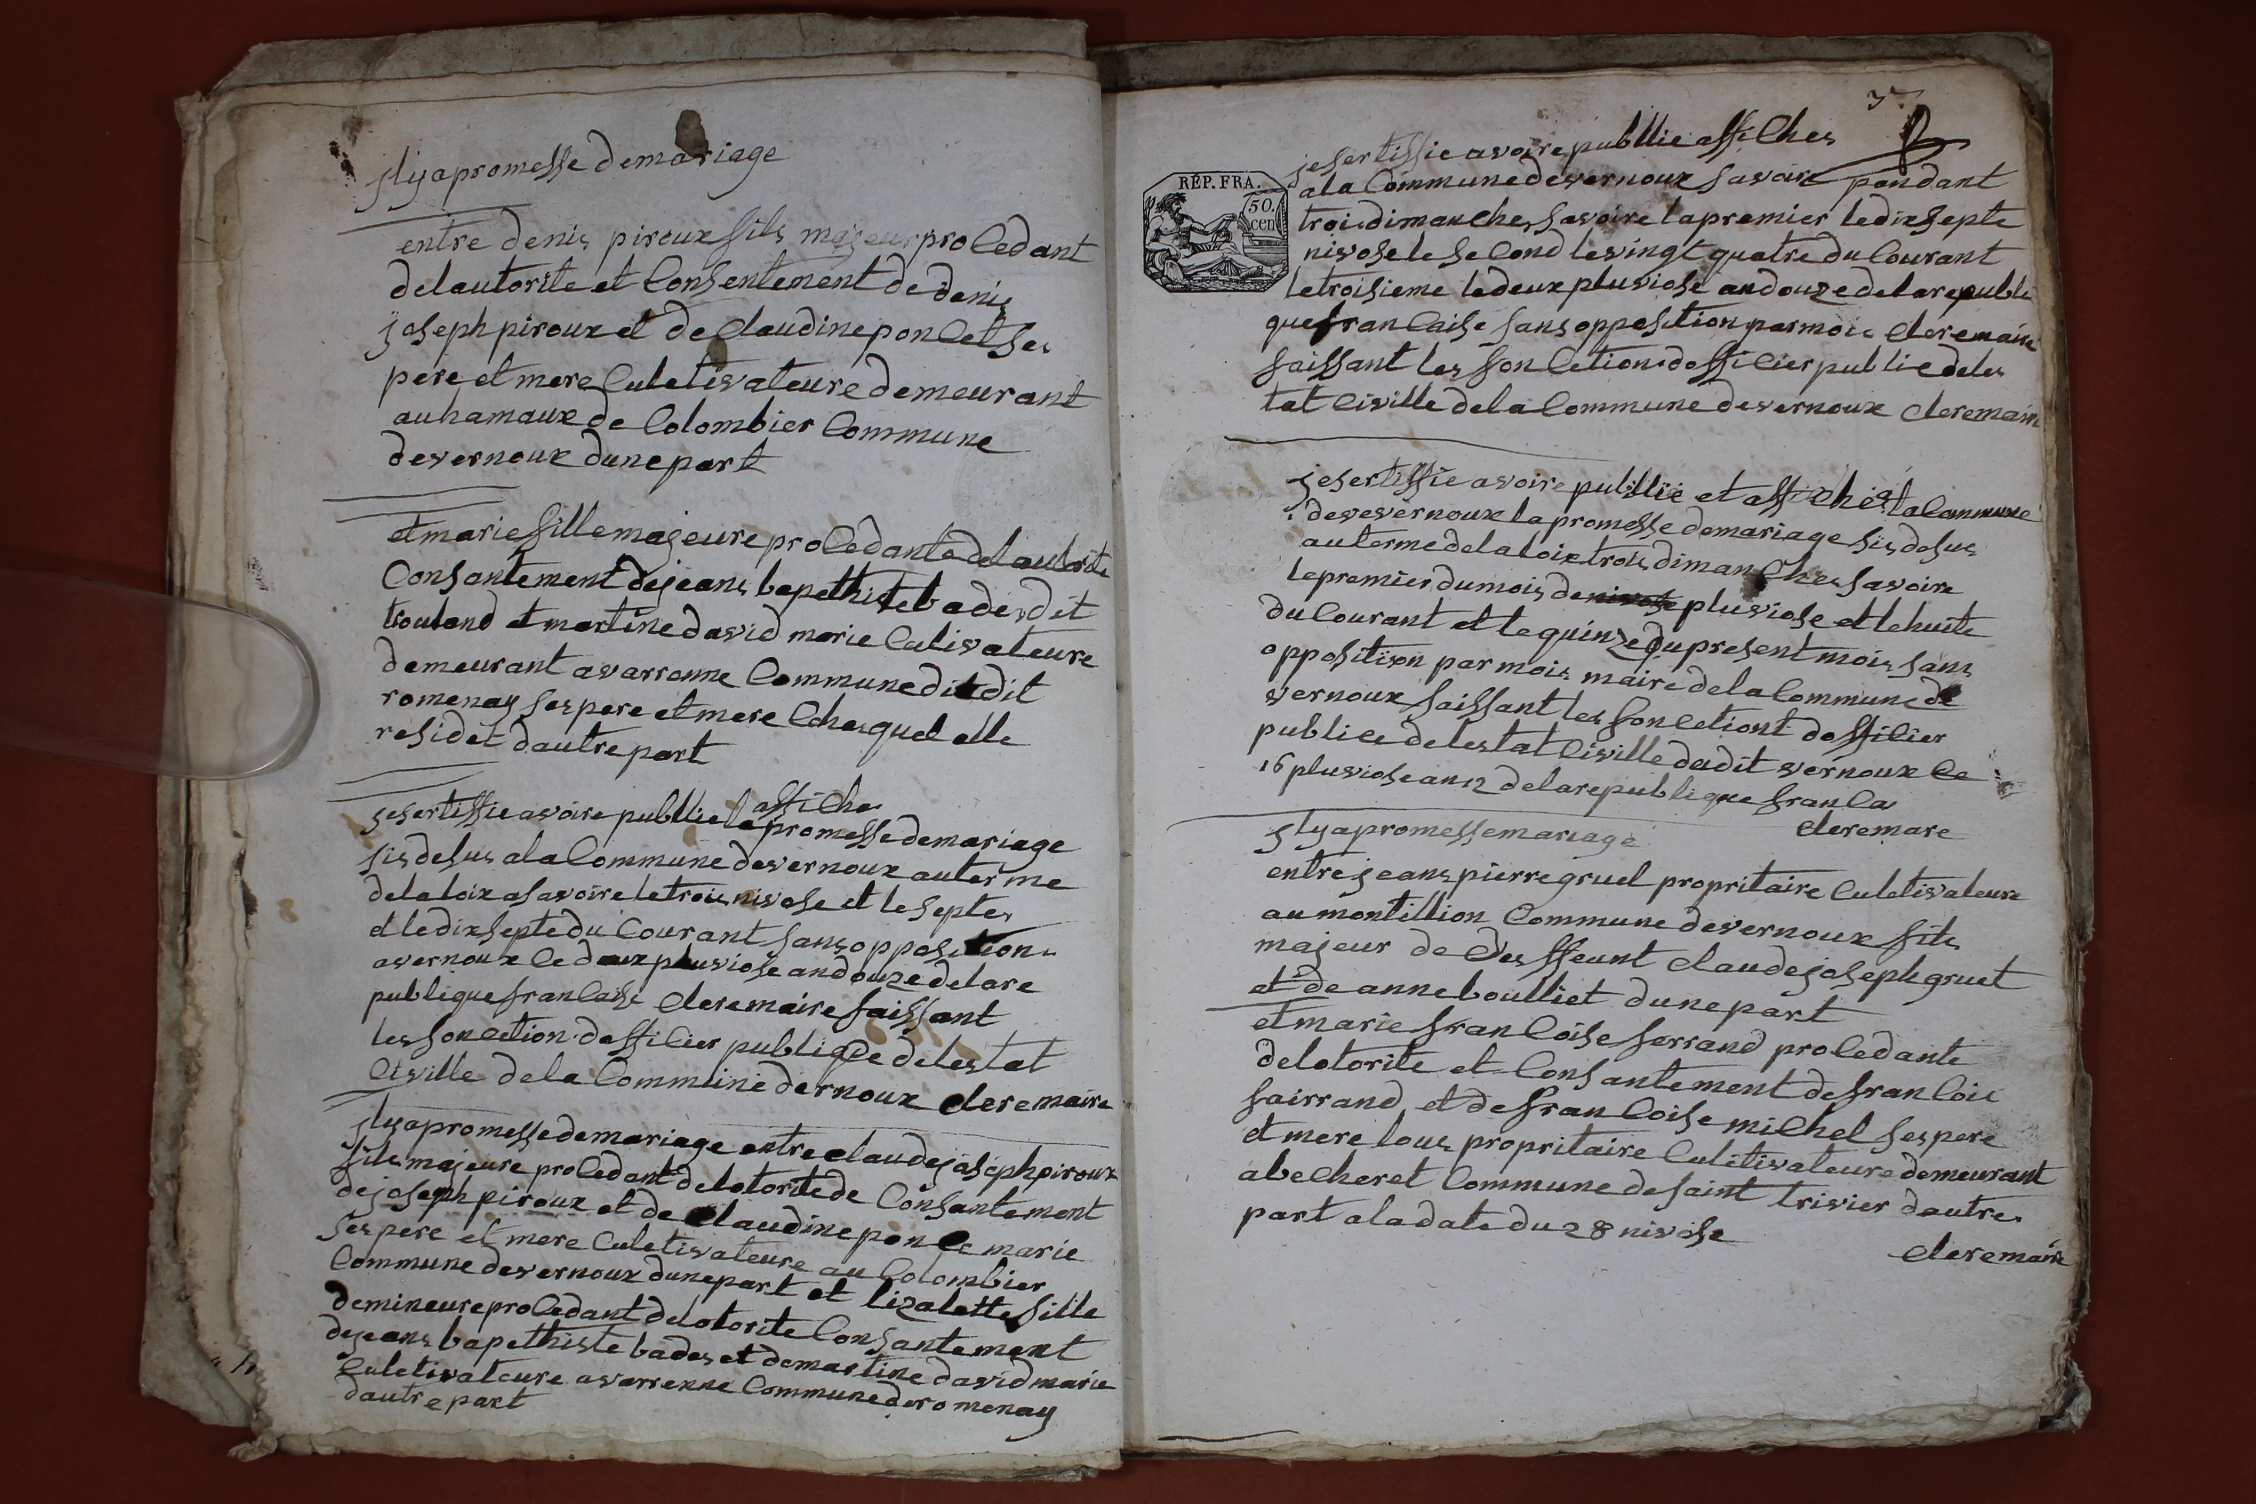 jlyapromesse demariage
entre denis piroux fils majeur procedant
delautorite et Consentement de denis
joseph piroux et de claudine poncet ses
pere et mere Culetivateure demeurant
au hamaux de Colombier Commune
devernoux dune part
et marie fille majeure procedante delautorite
Consantement dejeans bapethiste bades dit
et martine david marie Cultivateure
demeurant avarenne Commune dit
romenay ses pere et mere Chesquel elle
residet dautre part
affiche
jesertiffie avoire publlie la promesse demariage
sis desus ala Commune devernoux auterme
delaloix asavoire letrois nivose et le septe
et ledixsepte du Courant sans opposition
avernoux Cedeux pluviose andouze delare
publique francaise clere maire faissant
les fonCetion dofficier publique delestat
Civille dela Commune dernoux clere maire
jlyapromesse demariage entre claude joseph piroux
fils majeure procedant delotorite de Consantement
dejoseph piroux et de claudine ponce marie
ses pere et mere Culetivateure au Colombier
Commune devernoux dunepart et lizabette fille
demineure procedant delotorite Consantement
dejeans bapethiste bades et demartine david marie
Culetivateure avarrenne Commune deromenay
dautre part
jesertiffie avoire publlie affiches
ala Commune devernoux savoire pandant
RÉP. FRA.
50.
cen
trois dimanches savoire lapremier ledixsepte
nivose le seCond levingt quatre du Courant
letroisieme ledeux pluviose andouze delarepubli
que francaise sans opposition par mois clere maire
faissant les fonCetion dofficier publie deles
tat Civille dela Commune devernoux clere maire
jesertiffie avoire publlie et affiche a la Commune
devevernoux lapromesse demariage sis desus
auterme delaloix trois dimanches savoire
lepremier dumois de nivose pluviose et lehuite
du Courant et lequinze dupresent mois sans
opposition par mois maire dela Commune de
vernoux faissant les fonCetiont dofficier
publice delestat Civille dudit vernoux Ce
16 pluviose an 12 delarepublique franca
clere mare
jlyapromesse mariage
entre jeans pierre gruel propritaire Culetivateure
au montillion Commune devernoux fils
majeur de deffeunt claude joseph gruet
et de anne boulliet dune part
et marie francoise ferrand procedante
delotorite et Consantement defrancois
fairrand et defrancoise michel ses pere
et mere tous propritaire Culetivateure demeurant
abecheret Commune desaint trivier dautre
part aladate du 28 nivose
clere maire